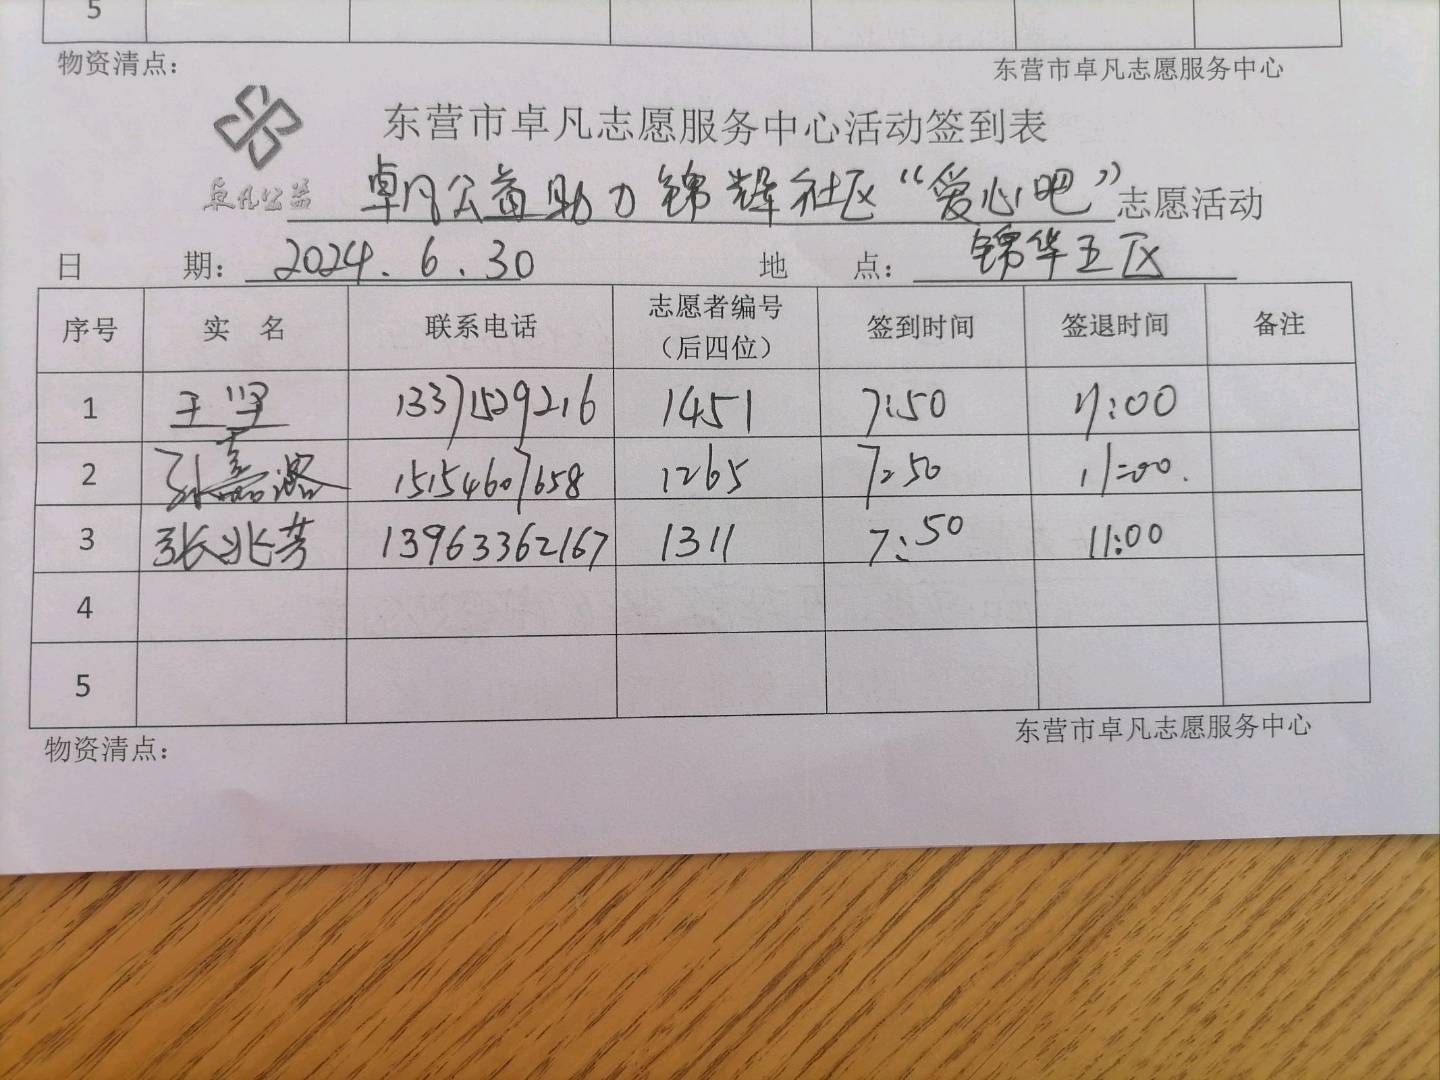 5
物资清点：
东营市卓凡志愿服务中心
东营市卓凡志愿服务中心活动签到表
卓凡公益
卓凡公益助力锦辉社区“爱心吧”志愿活动
日 期：2024.6.30 地 点：锦华五区
序号 实 名 联系电话 志愿者编号（后四位） 签到时间 签退时间 备注
1 王坚 13371529216 1451 7:50 11:00
2 15154607658 1265 7:50 11:00.
3 张兆芳 13963362167 1311 7:50 11:00
4
5
物资清点：
东营市卓凡志愿服务中心